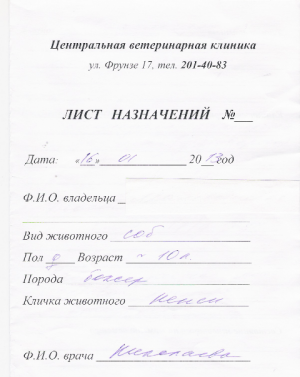 Центральная ветеринарная клиника
ул. Фрунзе 17, тел. 201-40-83
ЛИСТ НАЗНАЧЕНИЙ №___
Дата: «16» 01 2013 год
Ф.И.О. владельца _
Вид животного соб
Пол Возраст ~ 10 л.
Порода боксер
Кличка животного Ненси
Ф.И.О. врача Николаева